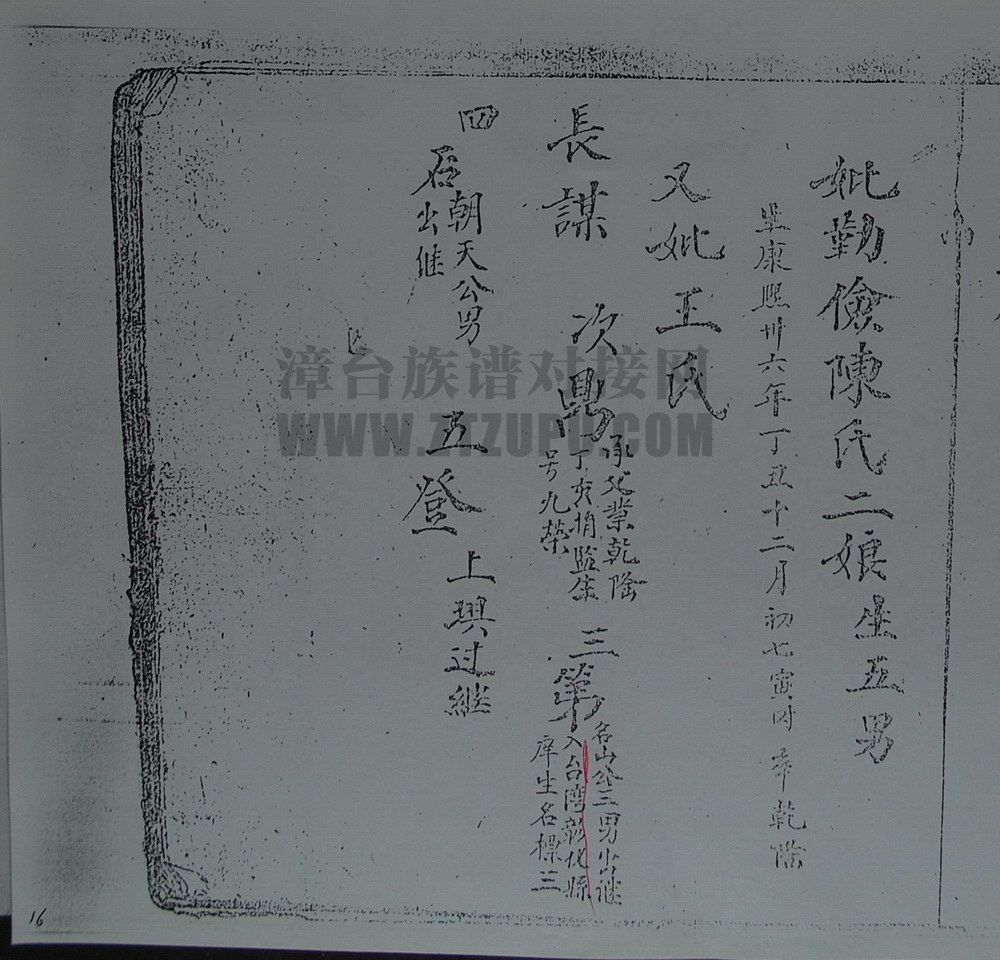 妣勤儉陳氏二娘生五男
生康熙卅六年丁丑十二月初七寅时卒乾隆
又妣王氏
長謀
次鼎
承父業乾隆
丁亥捐監生
号九榮
三第
名山公三男出继
入台湾彰化縣
庠生名標三
四石
朝天公男
出继
五登
上珙过继
漳台族谱对接网
WWW.ZTZUPU.COM
16